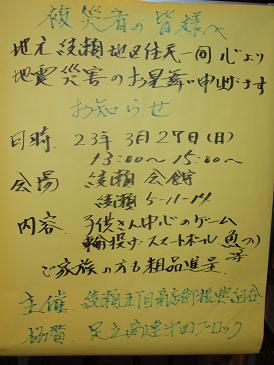 被災者の皆様へ
地元綾瀬地区住民一同心より
地震災害のお見舞い申し上げます
お知らせ
日時 23年 3月27日(日)
13:00〜 15:00〜
会場 綾瀬会館
綾瀬 5-11-14
内容 子供さん中心のゲーム
輪投げ・スマートボール 魚つり 等
ご家族の方も粗品進呈
主催 綾瀬五丁目商店街振興組合
協賛 足立 第四ブロック